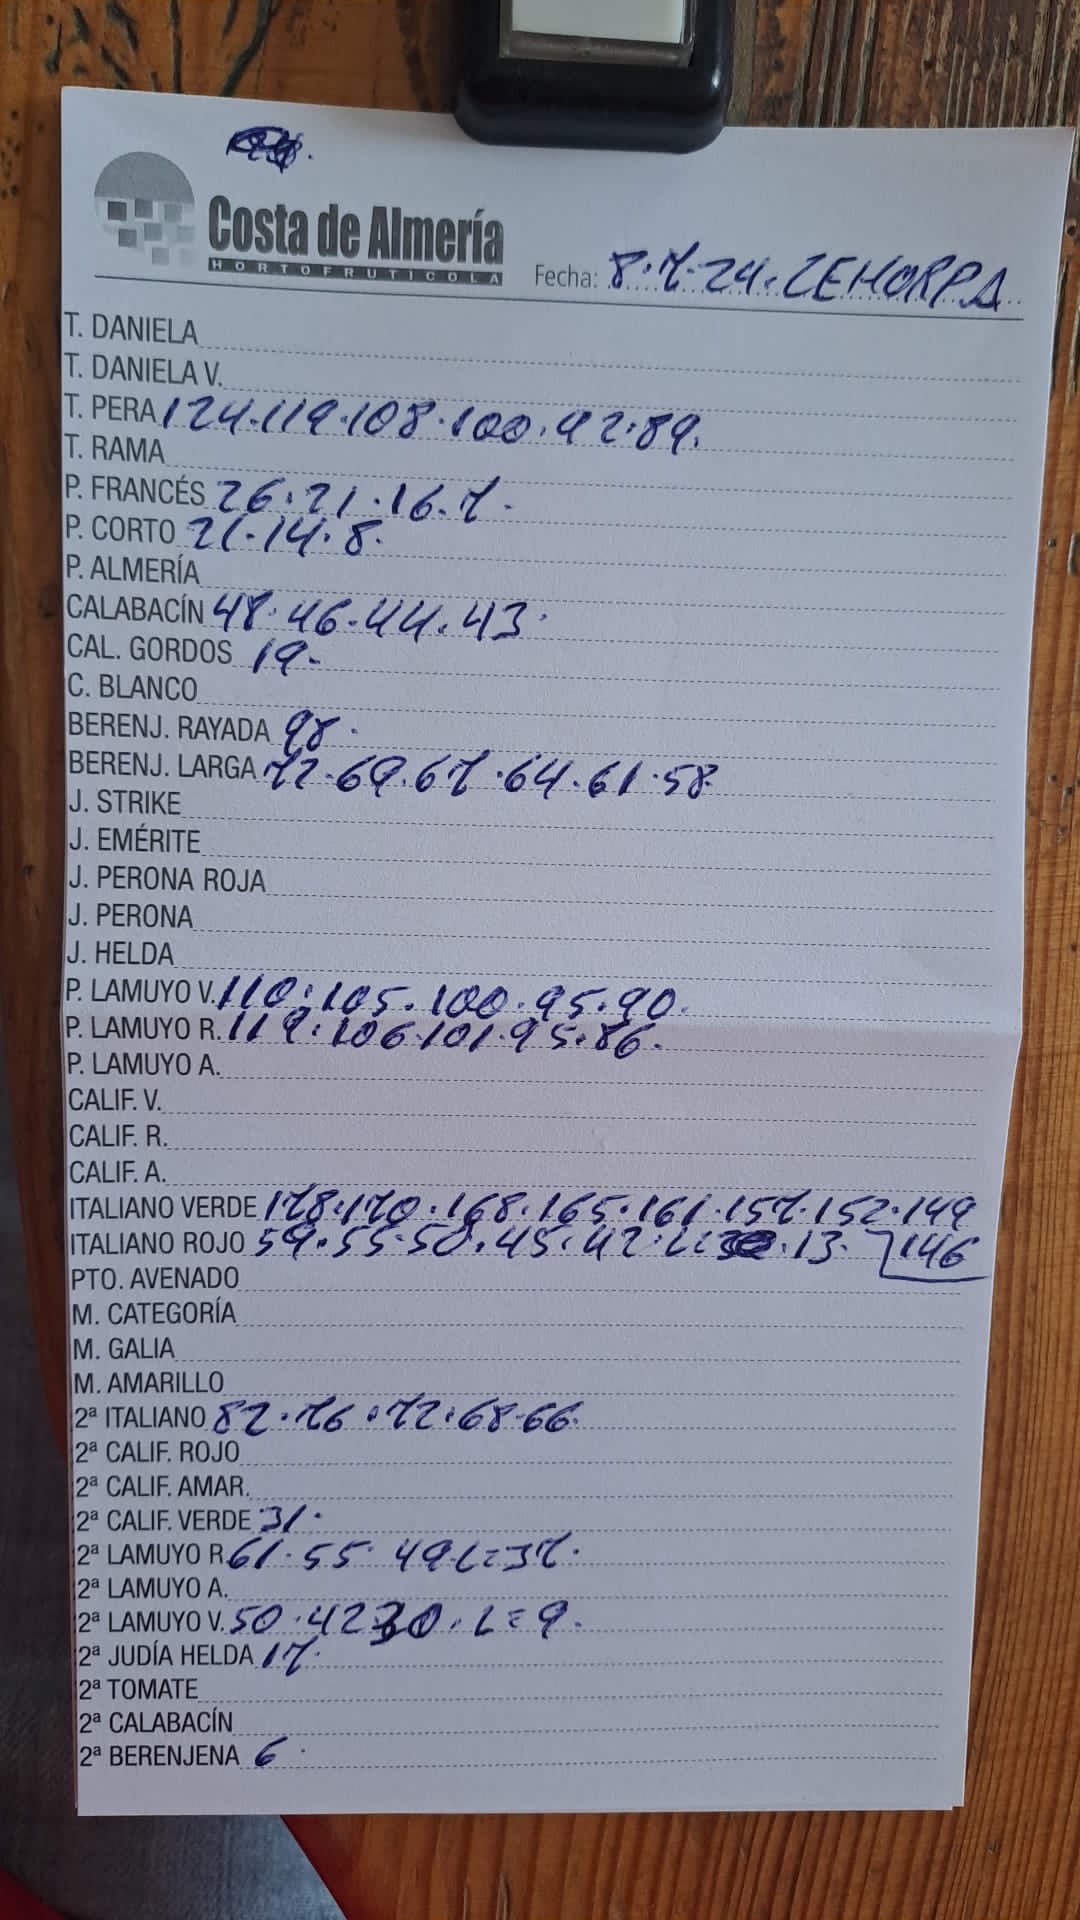 Costa de Almería
HORTOFRUTICOLA
Fecha: 8.7.24. CEHORPA
T. DANIELA
T. DANIELA V.
T. PERA 124.119.108.100.92.89.
T. RAMA
P. FRANCÉS 26.21.16.7.
P. CORTO 21.14.8.
P. ALMERÍA
CALABACÍN 48.46.44.43.
CAL. GORDOS 19.
C. BLANCO
BERENJ. RAYADA 98.
BERENJ. LARGA 72.69.67.64.61.58
J. STRIKE
J. EMÉRITE
J. PERONA ROJA
J. PERONA
J. HELDA
P. LAMUYO V. 110.105.100.95.90.
P. LAMUYO R. 119.106.101.95.86.
P. LAMUYO A.
CALIF. V.
CALIF. R.
CALIF. A.
ITALIANO VERDE 178.170.168.165.161.157.152.149
ITALIANO ROJO 59.55.50.45.42.L= .13. 146
PTO. AVENADO
M. CATEGORÍA
M. GALIA
M. AMARILLO
2ª ITALIANO 82.76.72.68.66.
2ª CALIF. ROJO
2ª CALIF. AMAR.
2ª CALIF. VERDE 31.
2ª LAMUYO R. 61.55.49.L=37.
2ª LAMUYO A.
2ª LAMUYO V. 50.42.30.L=9.
2ª JUDÍA HELDA 17.
2ª TOMATE
2ª CALABACÍN
2ª BERENJENA 6.